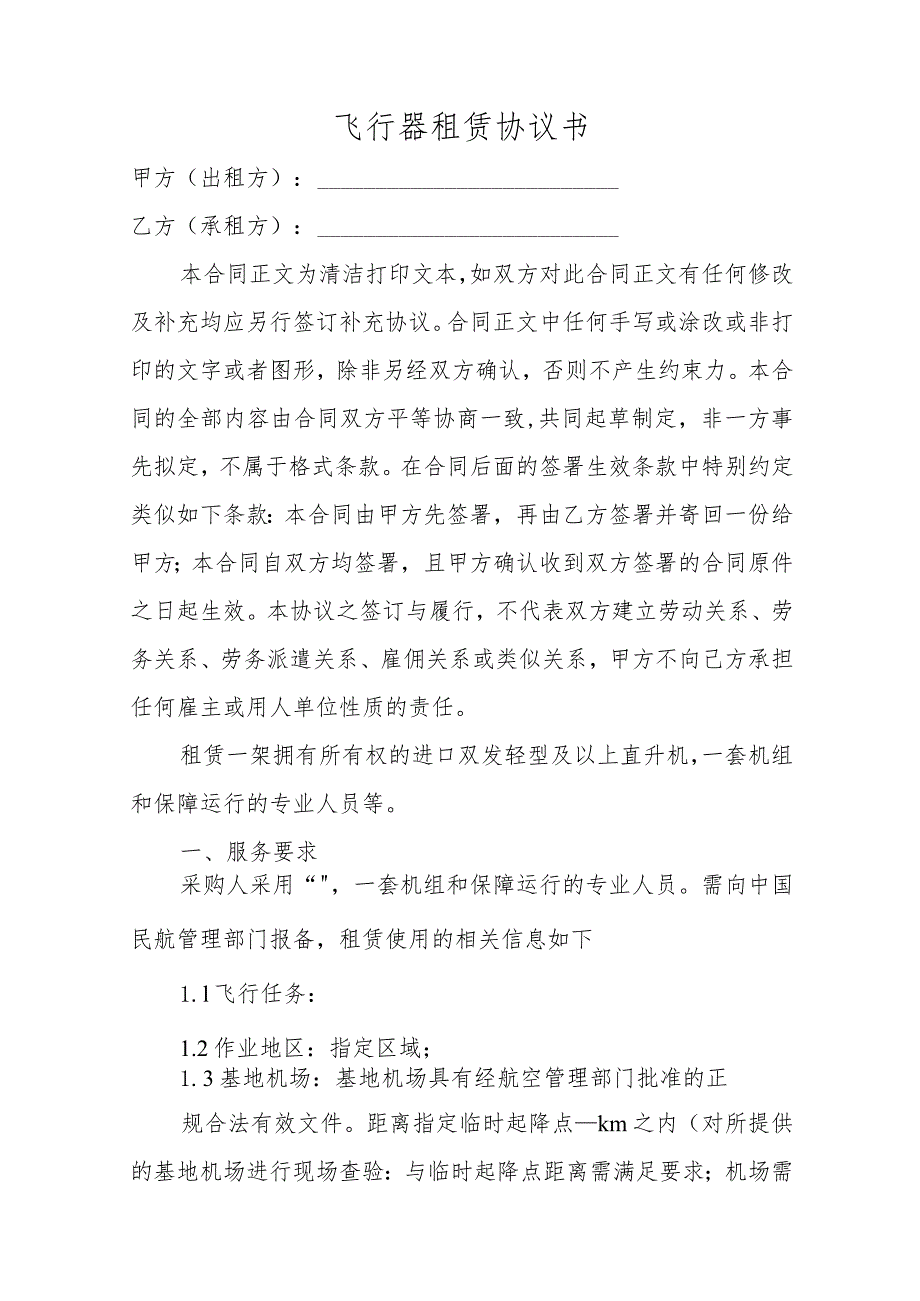 飞行器租赁协议书
甲方（出租方）：_________________________
乙方（承租方）：_________________________
本合同正文为清洁打印文本,如双方对此合同正文有任何修改
及补充均应另行签订补充协议。合同正文中任何手写或涂改或非打
印的文字或者图形，除非另经双方确认，否则不产生约束力。本合
同的全部内容由合同双方平等协商一致,共同起草制定，非一方事
先拟定，不属于格式条款。在合同后面的签署生效条款中特别约定
类似如下条款：本合同由甲方先签署，再由乙方签署并寄回一份给
甲方；本合同自双方均签署，且甲方确认收到双方签署的合同原件
之日起生效。本协议之签订与履行，不代表双方建立劳动关系、劳
务关系、劳务派遣关系、雇佣关系或类似关系，甲方不向己方承担
任何雇主或用人单位性质的责任。
租赁一架拥有所有权的进口双发轻型及以上直升机,一套机组
和保障运行的专业人员等。
一、服务要求
采购人采用“"，一套机组和保障运行的专业人员。需向中国
民航管理部门报备，租赁使用的相关信息如下
1. l飞行任务：
1.2 作业地区：指定区域；
1. 3 基地机场：基地机场具有经航空管理部门批准的正
规合法有效文件。距离指定临时起降点—km 之内（对所提供
的基地机场进行现场查验：与临时起降点距离需满足要求；机场需